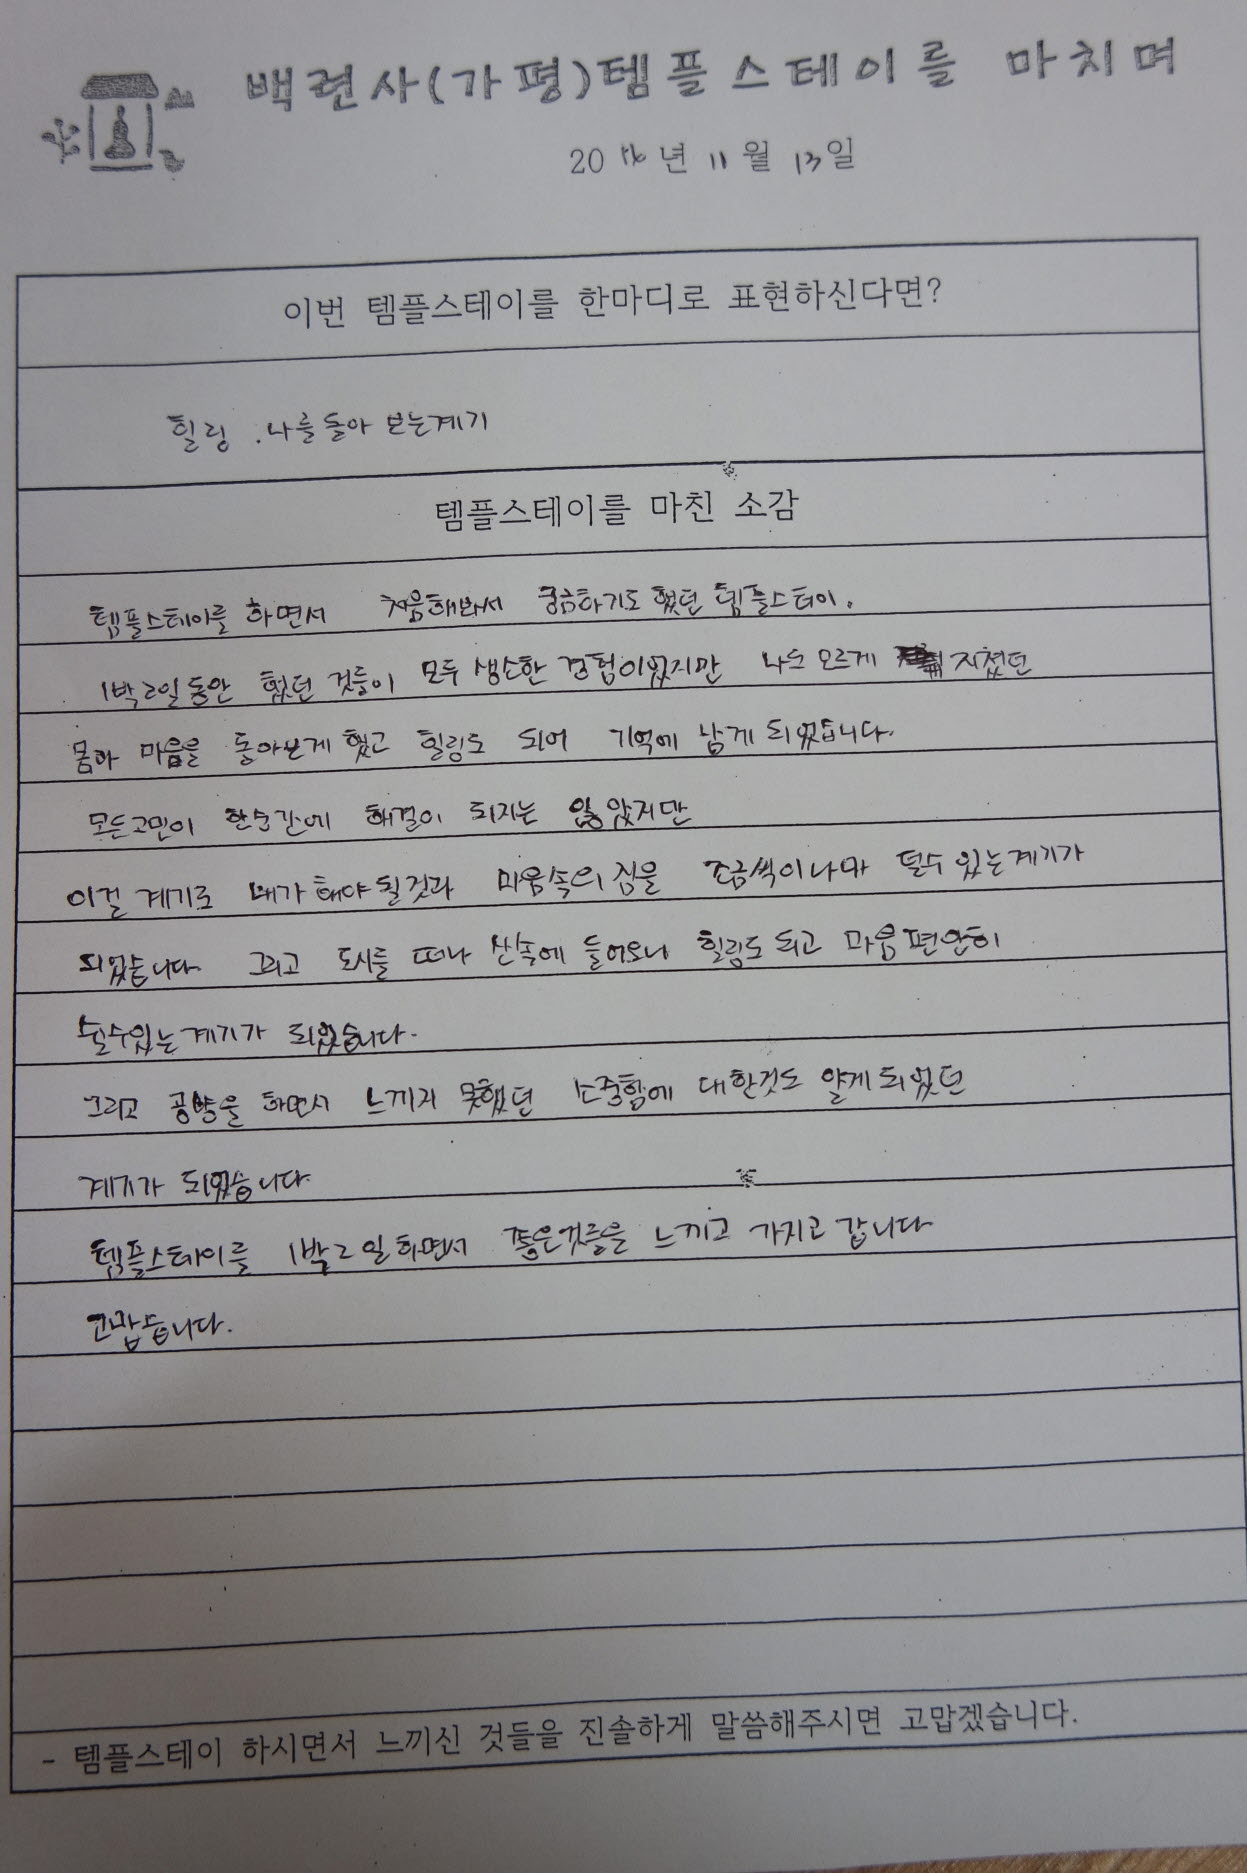 백련사(가평)템플스테이를 마치며
2016년 11월 13일
이번 템플스테이를 한마디로 표현하신다면?
힐링 . 나를 돌아 보는계기
템플스테이를 마친 소감
템플스테이를 하면서 처음해봐서 궁금하기도 했던 템플스테이.
1박2일동안 했던 것들이 모두 생소한 경험이었지만 나도 모르게 지쳤던
몸과 마음을 돌아보게 했고 힐링도 되어 기억에 남게 되었습니다.
모든고민이 한순간에 해결이 되지는 않았지만
이걸 계기로 내가 해야 될것과 마음속의 짐을 조금씩이나마 덜수 있는계기가
되었습니다 그리고 도시를 떠나 산속에 들어오니 힐링도 되고 마음 편안히
쉴수있는계기가 되었습니다.
그리고 공양을 하면서 느끼지 못했던 소중함에 대한것도 알게되었던
계기가 되었습니다
템플스테이를 1박2일하면서 좋은것들을 느끼고 가지고 갑니다
고맙습니다.
- 템플스테이 하시면서 느끼신 것들을 진솔하게 말씀해주시면 고맙겠습니다.